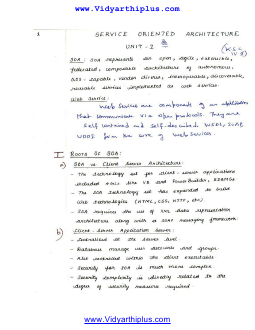 www.Vidyarthiplus.com
1
SERVICE ORIENTED ARCHITECTURE
UNIT - 2
SOA: SOA represents an open, agile, extensible,
federated, composable architecture of autonomous,
QoS - capable, vendor diverse, interoperable, discoverable,
reusable service implemented as web service.
Web Service:
Web Services are components of an application
that communicate via open protocols. They are
self contained and self-described. WSDL, SOAP,
UDDI form the core of Web Services.
I Roots of SOA:
a) SOA vs Client Server Architecture:
- The technology set for client - server applications
included 4GLs like VB and Power Builder, RDBMSs
- The SOA technology set has expanded to include
Web technologies (HTML, CSS, HTTP, etc)
- SOA requires the use of XML data representation
architecture along with a SOAP messaging framework
b) Client - Server Application Server:
- Centralized at the server level
- Databases manage user accounts and groups
- Also controlled within the client executable
- Security for SOA is much more complex
- Security complexity is directly related to the
degree of security measures required
www.Vidyarthiplus.com